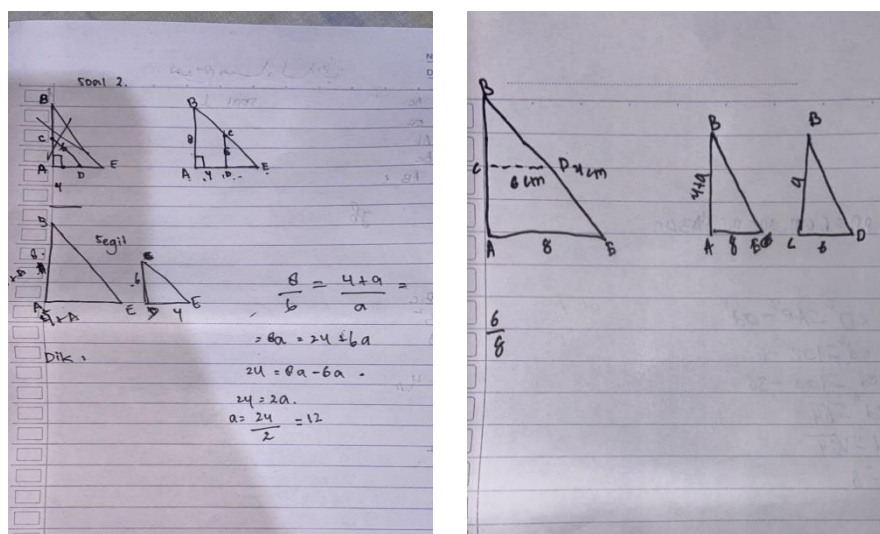 Soal 2.
B
C
6
A
D
E
4
B
8
C
6
A
4
D
E
B
Segi
8
6
A
4+A
E
D
4
E
Dik :
8/6 = 4+a/a =
= 8a = 24 + 6a
24 = 8a - 6a
24 = 2a.
a = 24/2 = 12
B
C
6 cm
D
x cm
A
8
E
B
4+a
A
8
E
B
a
C
6
D
6/8